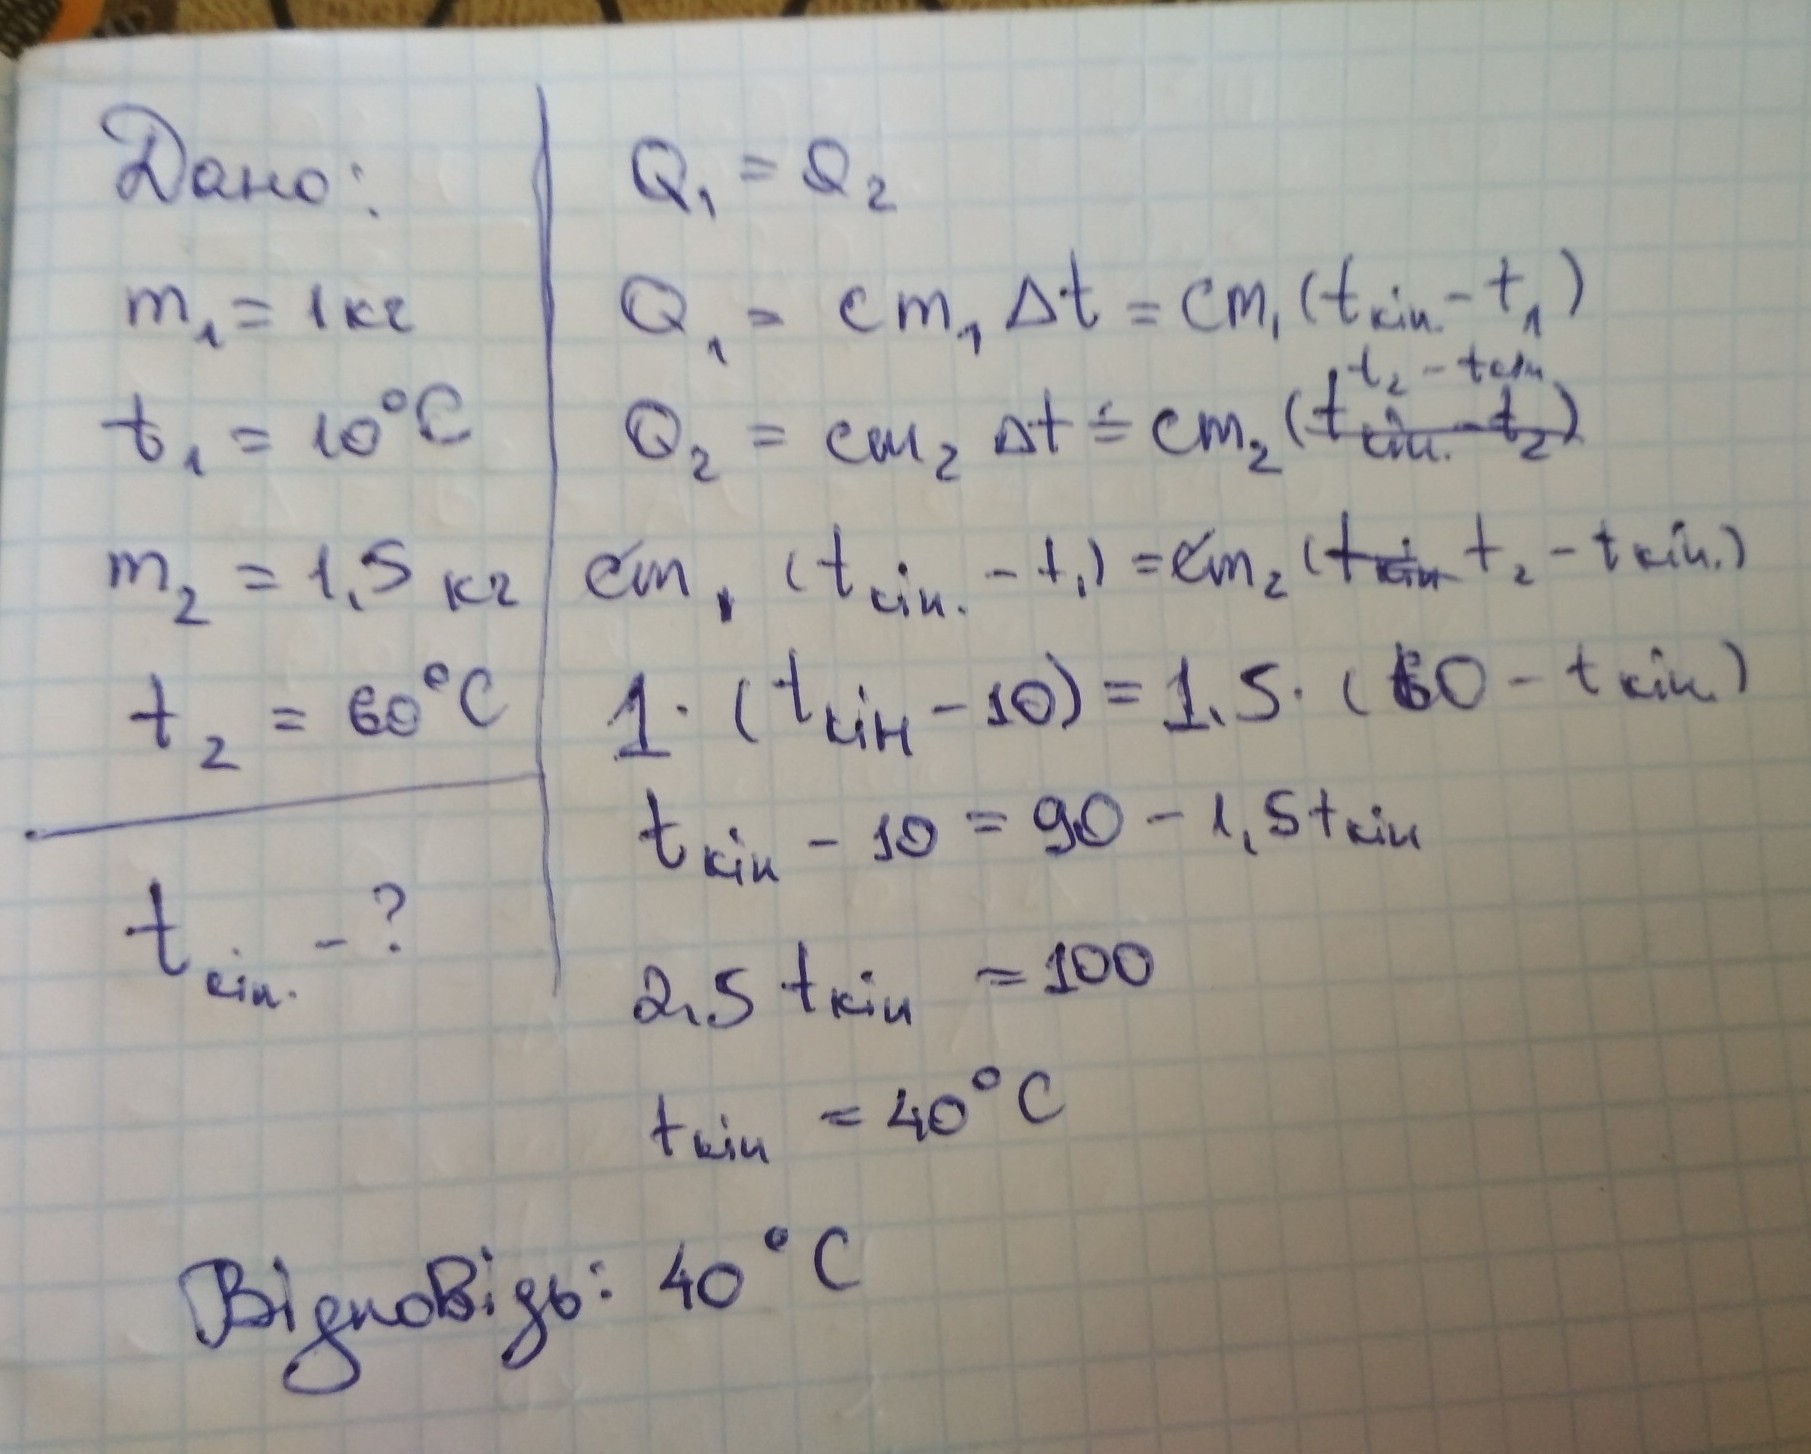 Дано:
m₁ = 1 кг
t₁ = 10°C
m₂ = 1,5 кг
t₂ = 60°C
tкін. - ?
Q₁ = Q₂
Q₁ = cm₁ Δt = cm₁ (tкін. - t₁)
t₂ - tкін
Q₂ = cm₂ Δt = cm₂ (tкін. - t₂)
cm₁ (tкін. - t₁) = cm₂ (tкін t₂ - tкін.)
1 · (tкін - 10) = 1,5 · (60 - tкін.)
tкін - 10 = 90 - 1,5tкін
2,5 tкін = 100
tкін = 40°C
Відповідь: 40°C